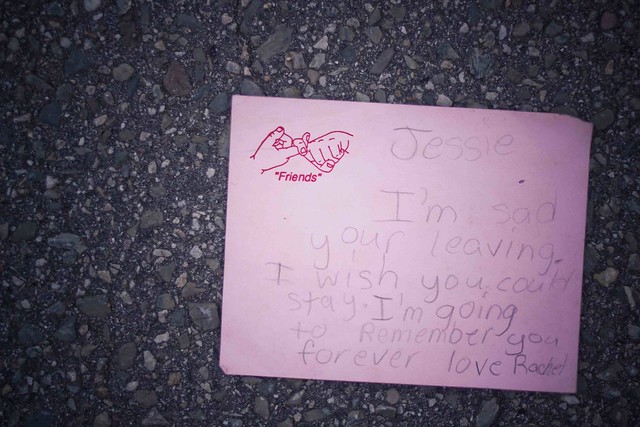 "Friends"
Jessie
I'm sad
your leaving.
I wish you could
stay. I'm going
to Remember you
forever love Rachel